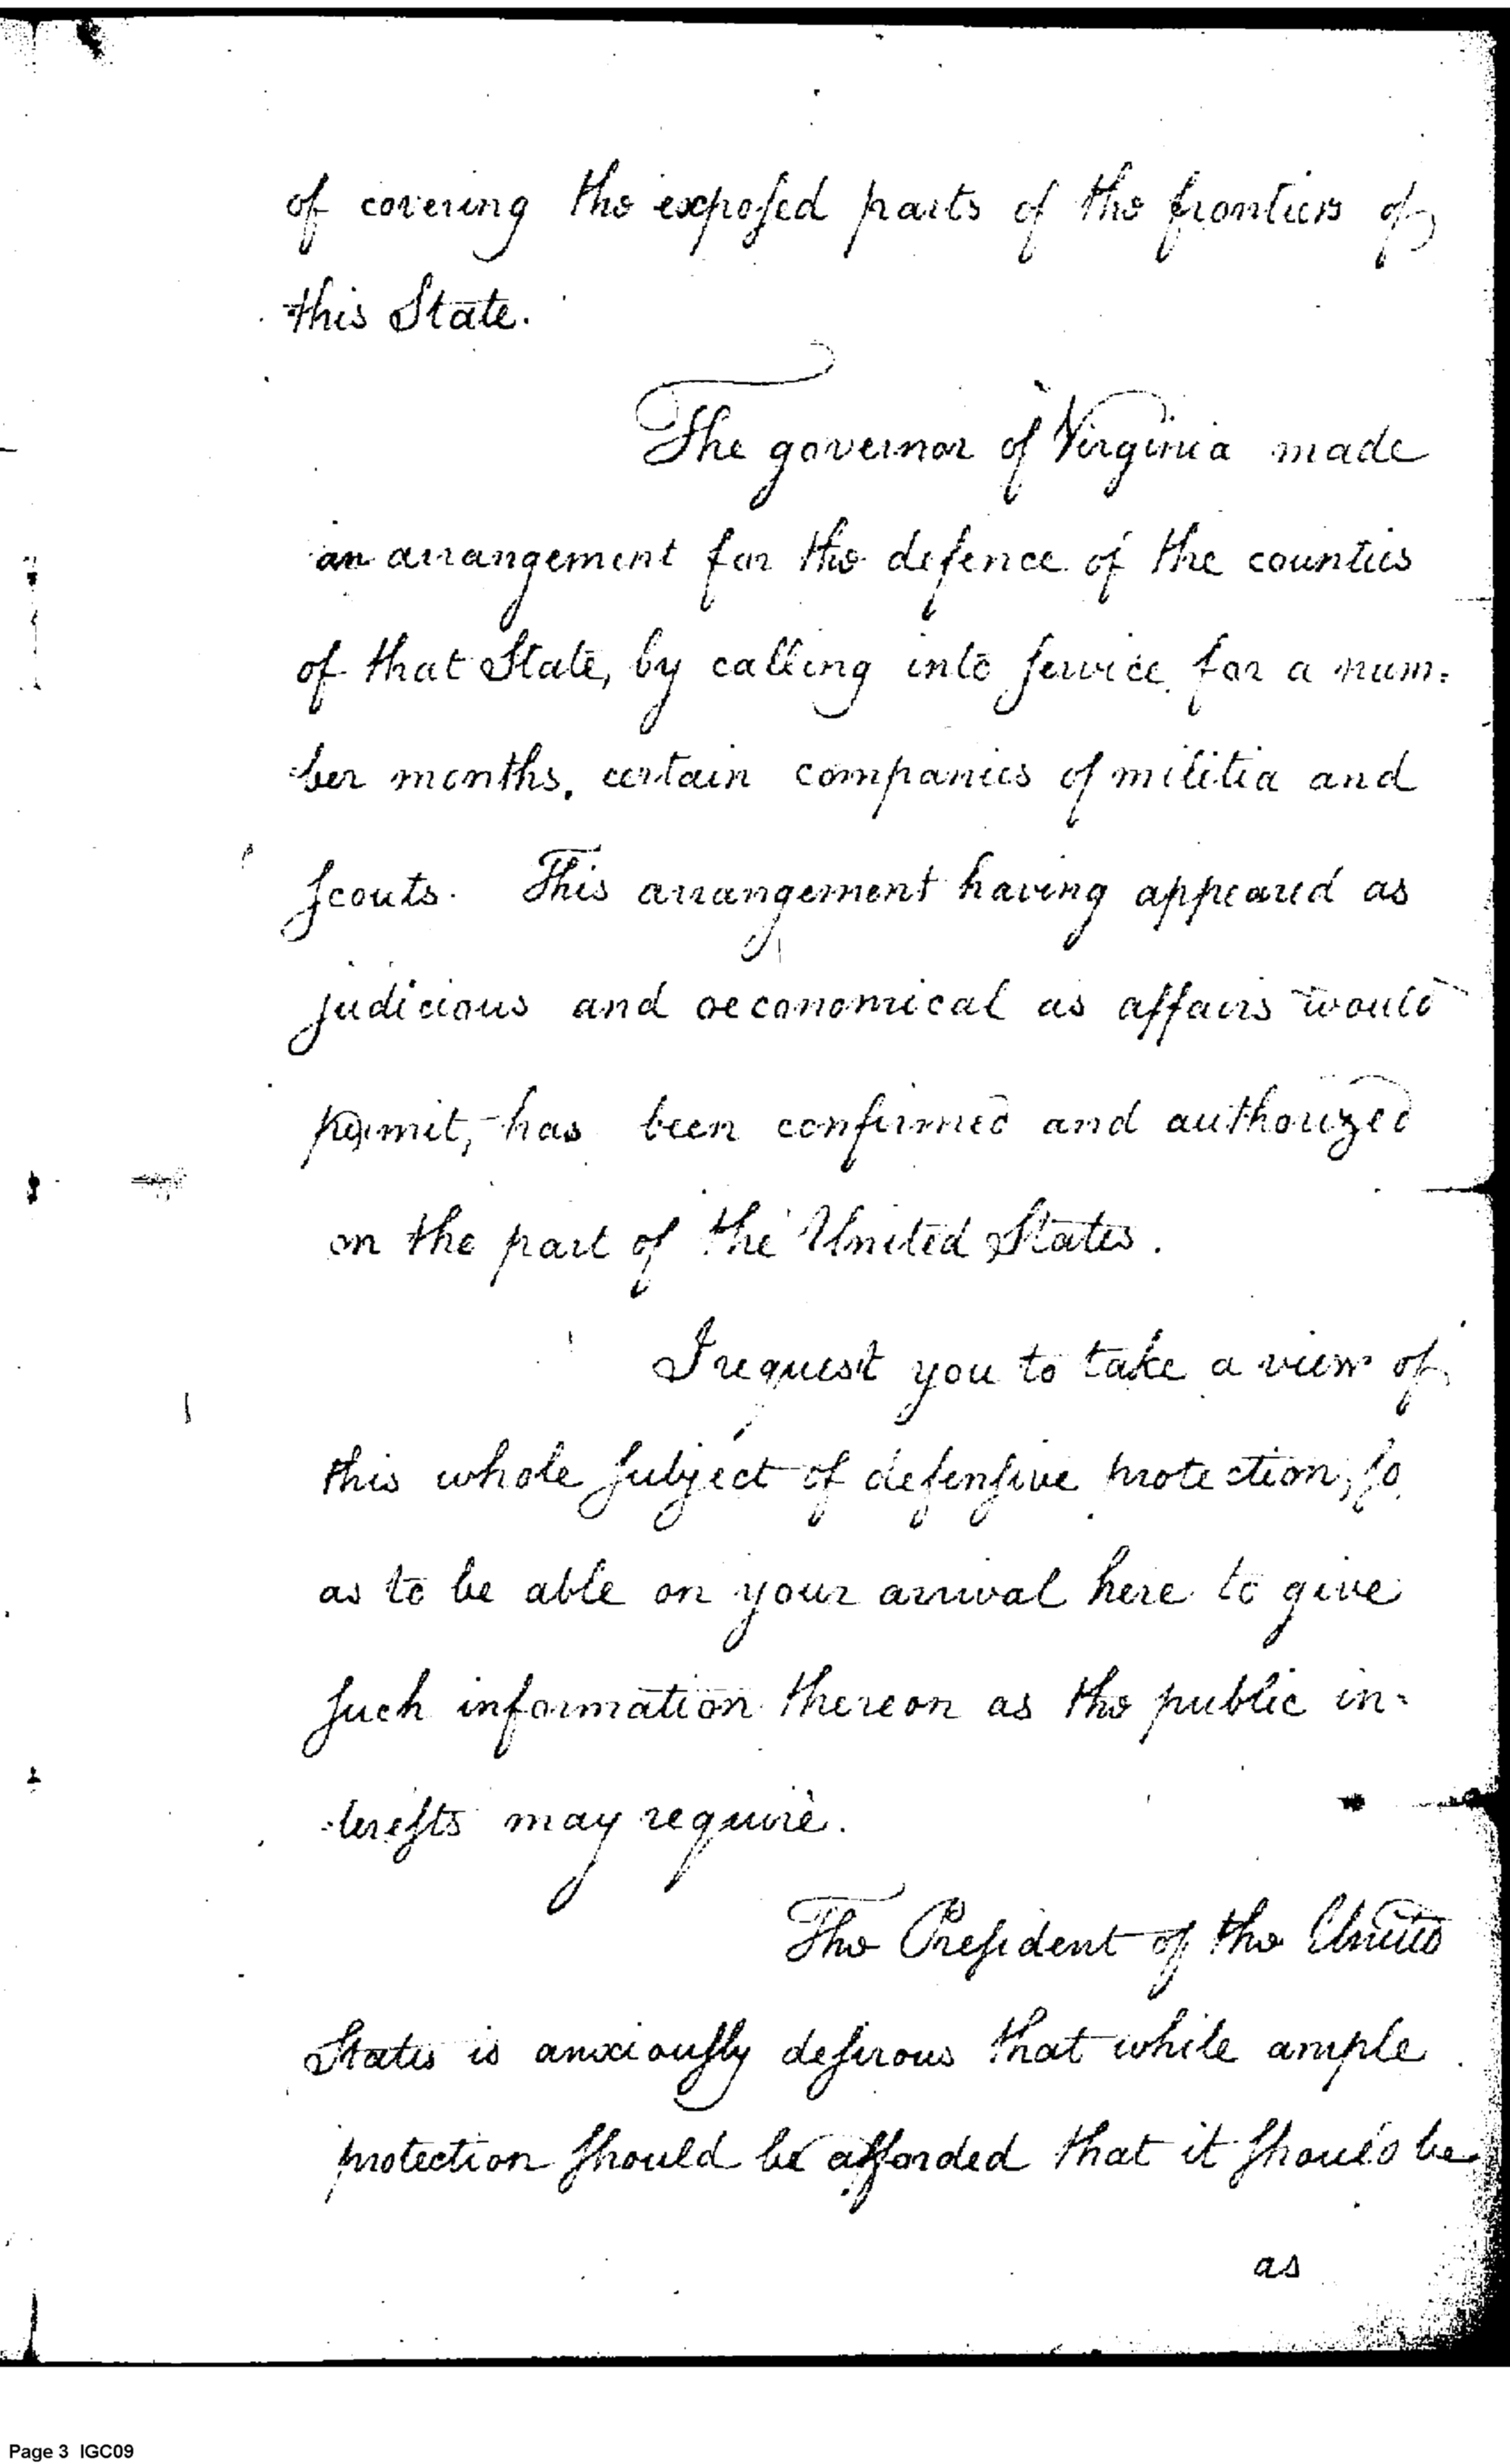 of covering the exposed parts of the frontiers of
this State.
The governor of Virginia made
an arrangement for the defence of the counties
of that State, by calling into service, for a num=
=ber months, certain companies of militia and
scouts. This arrangement having appeared as
judicious and oeconomical as affairs would
permit, has been confirmed and authorized
on the part of the United States.
I request you to take a view of
this whole subject of defensive protection, so
as to be able on your arrival here to give
such information thereon as the public in=
=terests may require.
The President of the United
States is anxiously desirous that while ample
protection should be afforded that it should be
as
Page 3 IGC09